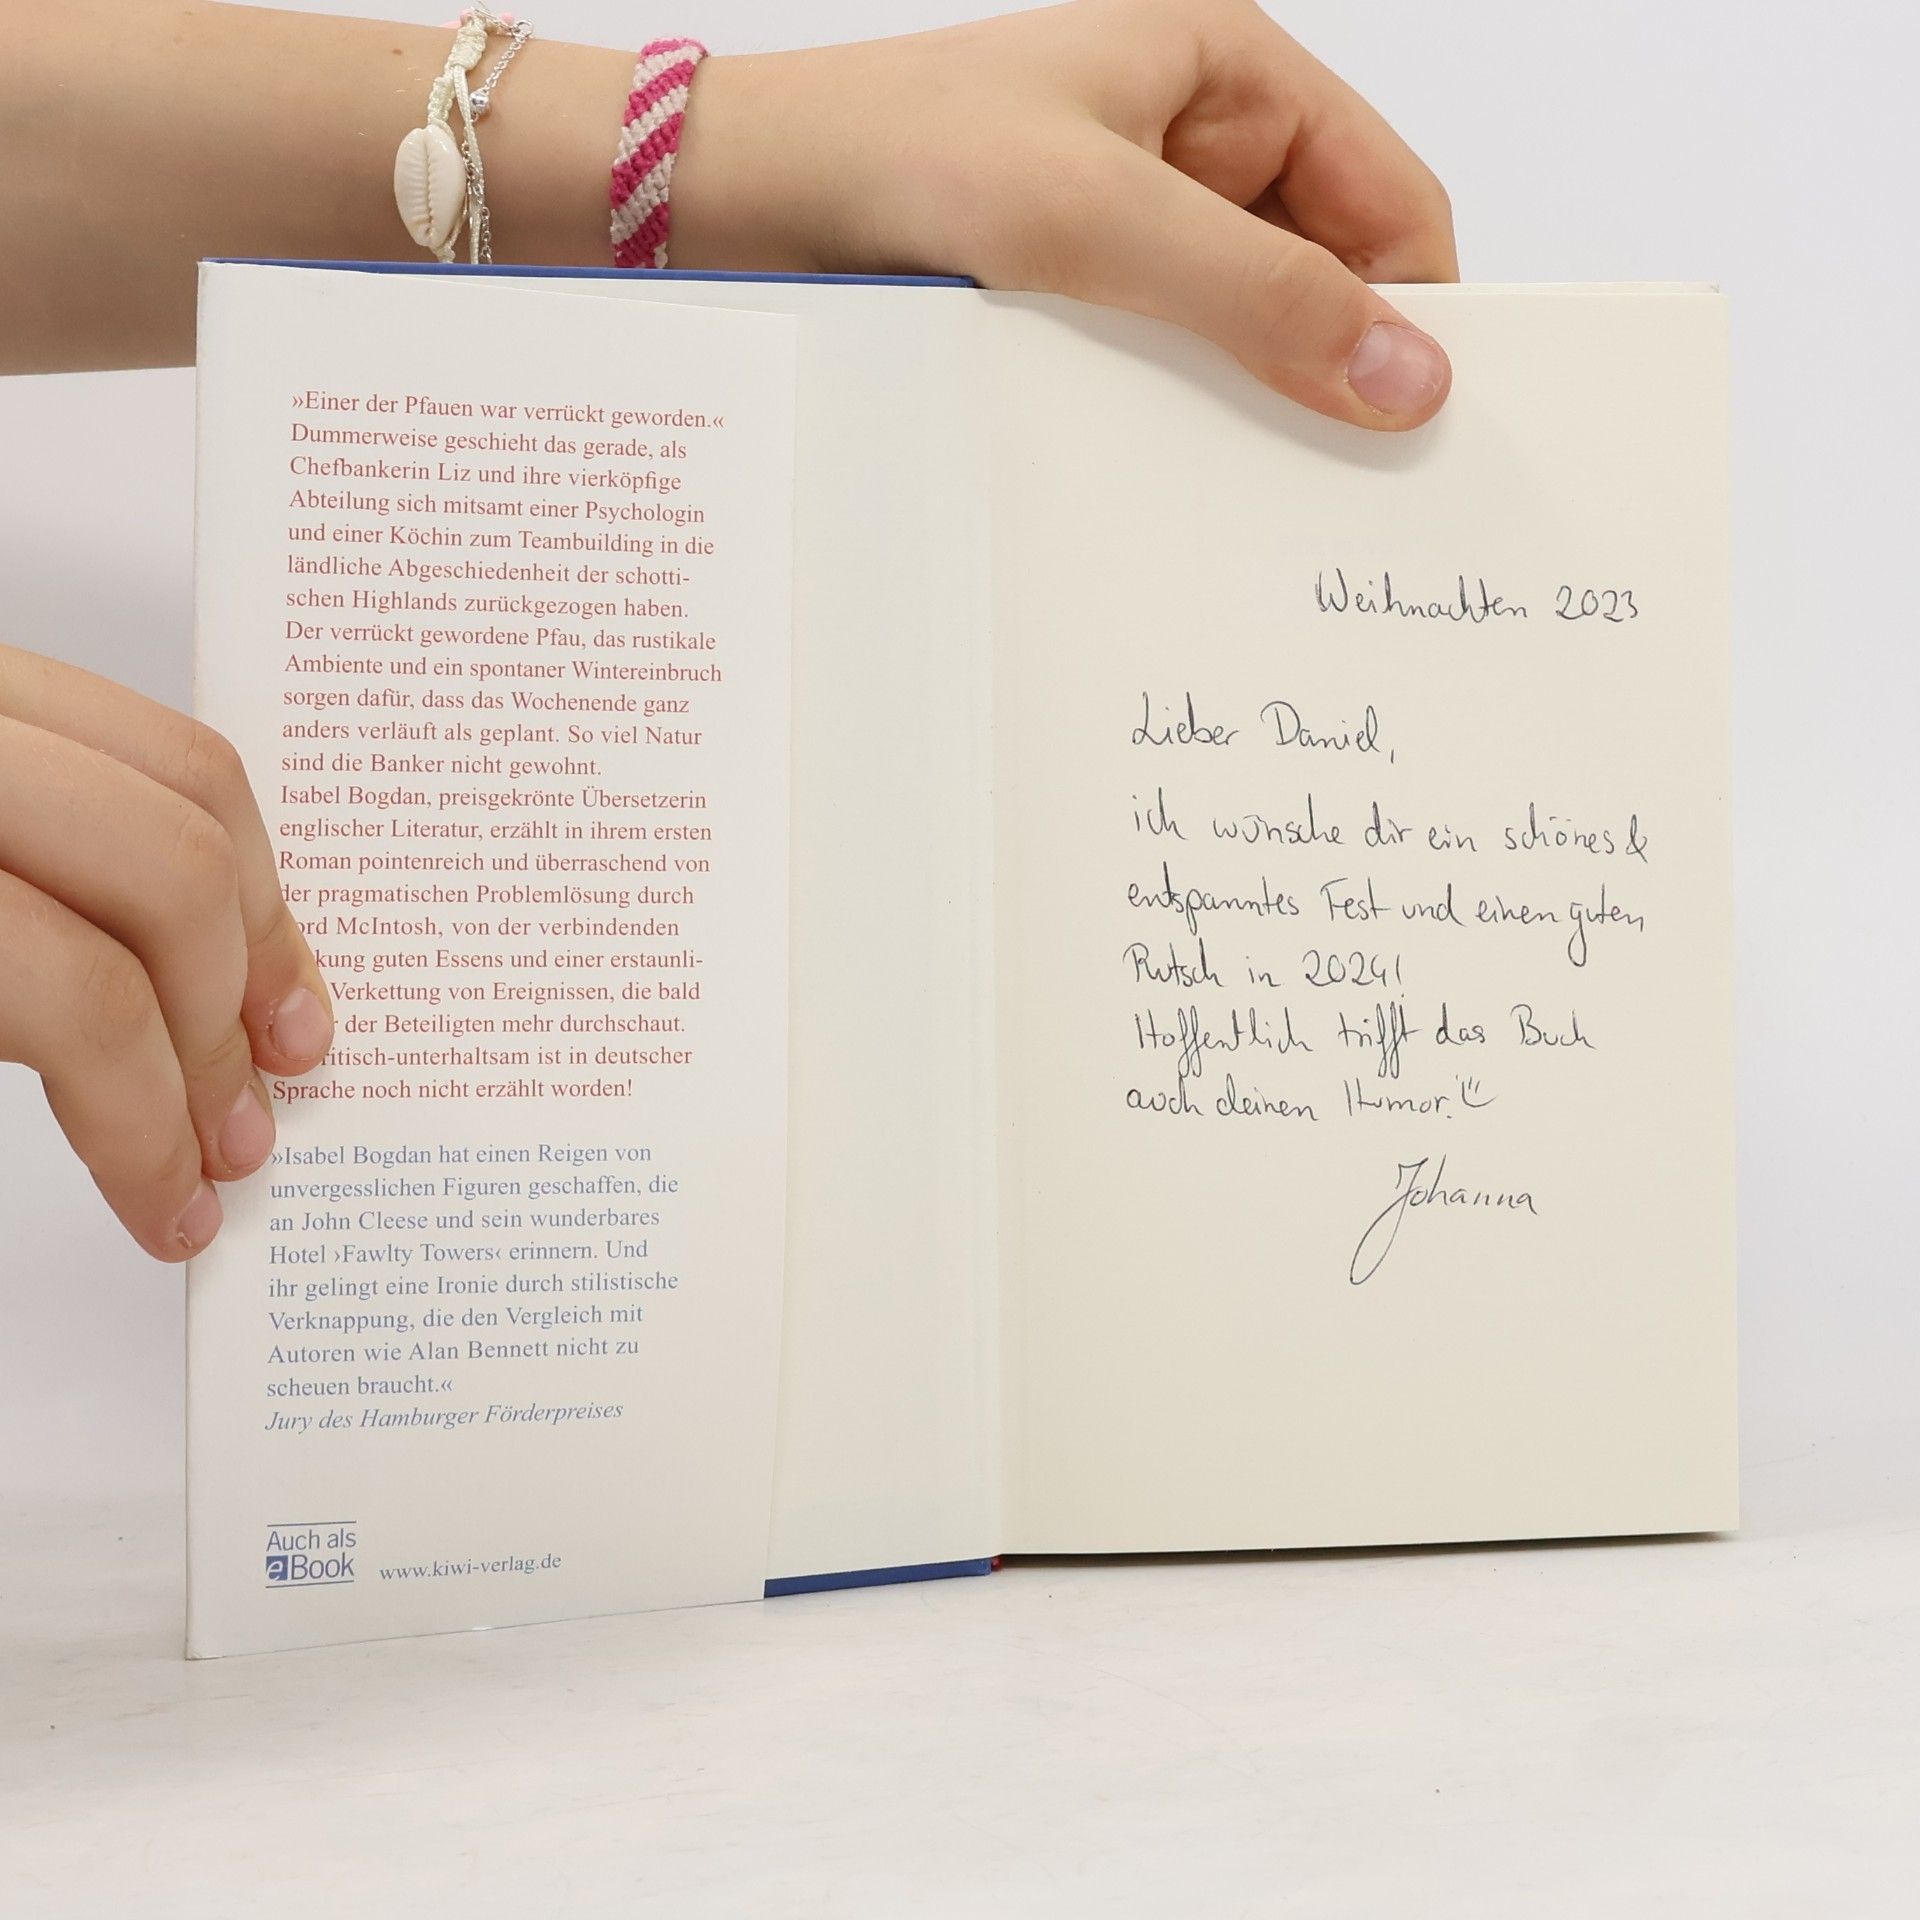 »Einer der Pfauen war verrückt geworden.«
Dummerweise geschieht das gerade, als
Chefbankerin Liz und ihre vierköpfige
Abteilung sich mitsamt einer Psychologin
und einer Köchin zum Teambuilding in die
ländliche Abgeschiedenheit der schotti-
schen Highlands zurückgezogen haben.
Der verrückt gewordene Pfau, das rustikale
Ambiente und ein spontaner Wintereinbruch
sorgen dafür, dass das Wochenende ganz
anders verläuft als geplant. So viel Natur
sind die Banker nicht gewohnt.
Isabel Bogdan, preisgekrönte Übersetzerin
englischer Literatur, erzählt in ihrem ersten
Roman pointenreich und überraschend von
der pragmatischen Problemlösung durch
ord McIntosh, von der verbindenden
kung guten Essens und einer erstaunli-
Verkettung von Ereignissen, die bald
der Beteiligten mehr durchschaut.
ritisch-unterhaltsam ist in deutscher
Sprache noch nicht erzählt worden!
»Isabel Bogdan hat einen Reigen von
unvergesslichen Figuren geschaffen, die
an John Cleese und sein wunderbares
Hotel ›Fawlty Towers‹ erinnern. Und
ihr gelingt eine Ironie durch stilistische
Verknappung, die den Vergleich mit
Autoren wie Alan Bennett nicht zu
scheuen braucht.«
Jury des Hamburger Förderpreises
Auch als
eBook
www.kiwi-verlag.de
Weihnachten 2023
Lieber Daniel,
ich wünsche dir ein schönes &
entspanntes Fest und einen guten
Rutsch in 2024!
Hoffentlich trifft das Buch
auch deinen Humor.
Johanna